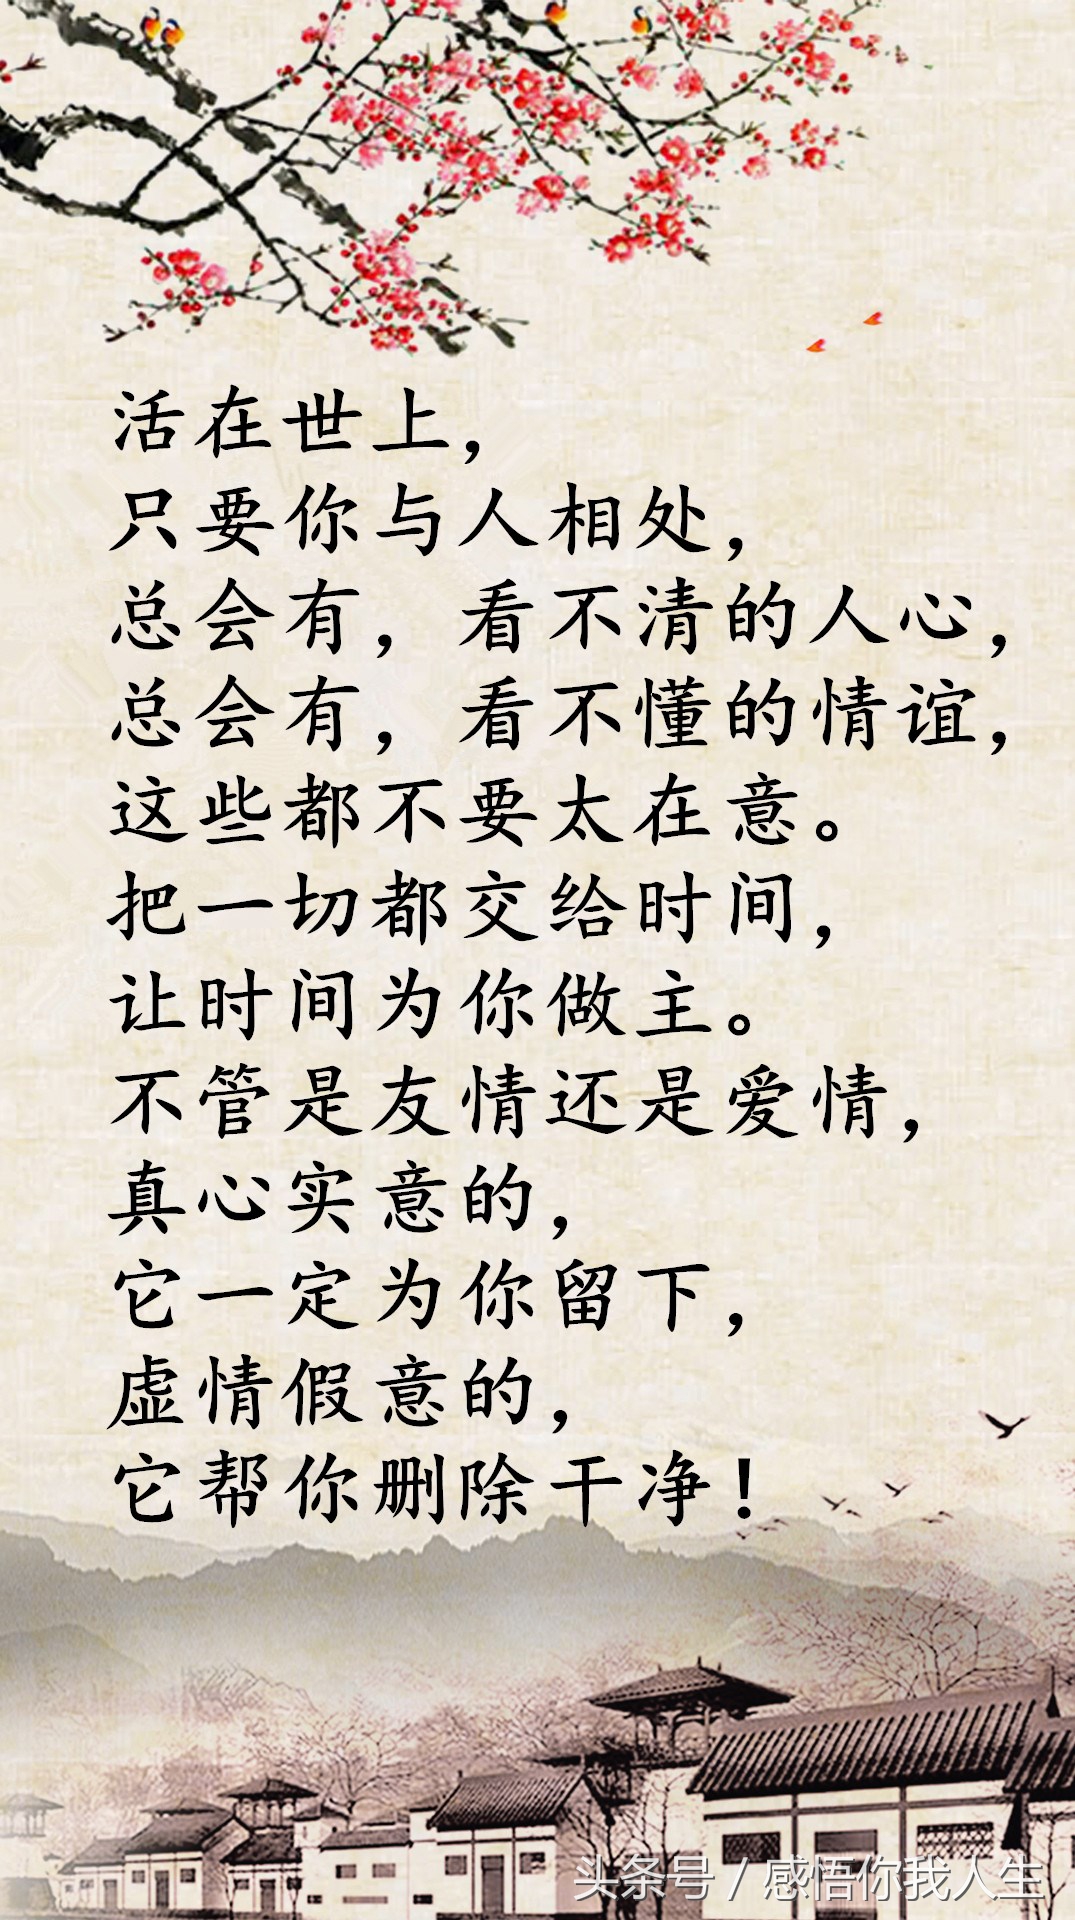 活在世上，
只要你与人相处，
总会有，看不清的人心，
总会有，看不懂的情谊，
这些都不要太在意。
把一切都交给时间，
让时间为你做主。
不管是友情还是爱情，
真心实意的，
它一定为你留下，
虚情假意的，
它帮你删除干净！
头条号 / 感悟你我人生